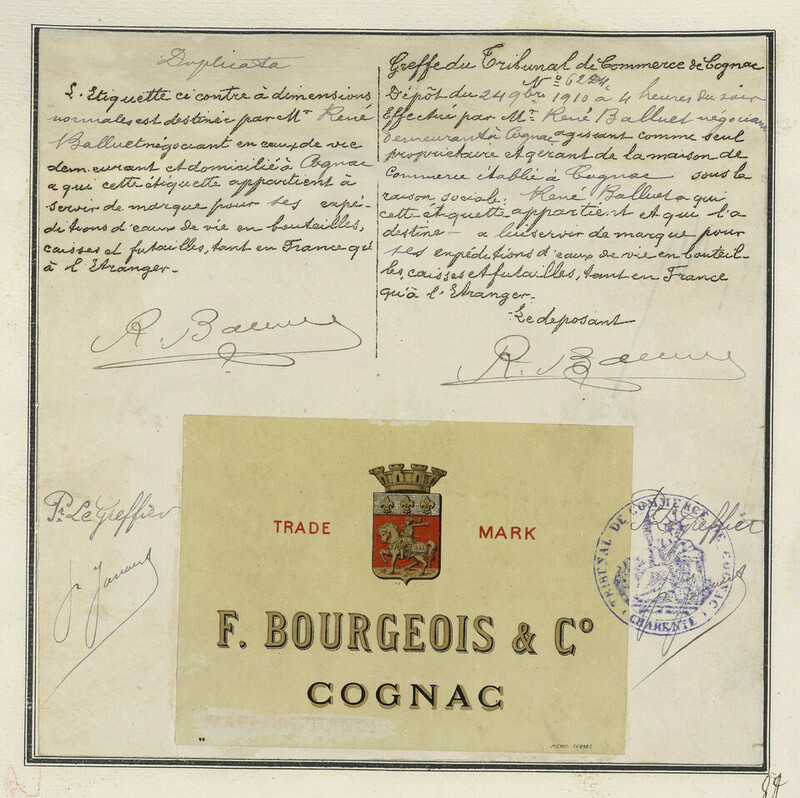 Duplicata
L'Etiquette ci contre à dimensions
normales est destinée par Mr René
Balluet négociant en eaux de vie
demeurant et domicilié à Cognac
a qui cette étiquette appartient à
servir de marque pour ses expé-
ditions d'eaux de vie en bouteilles,
caisses et futailles, tant en France qu'
à l'Etranger.-
Greffe du Tribunal de Commerce de Cognac
Dépôt du 24 9bre 1910 à 4 heures du soir
Effectué par Mr René Balluet négociant
demeurant à Cognac agissant comme seul
propriétaire et gérant de la maison de
Commerce établie à Cognac sous la
raison sociale: René Balluet a qui
cette étiquette appartient et qui l'a
destine - a lui servir de marque pour
ses expéditions d'eaux de vie en bouteil-
les, caisses et futailles, tant en France
qu'à l'Etranger.-
Le deposant
Pr Le Greffier
TRADE MARK
F. BOURGEOIS & Co
COGNAC
Le Greffier
TRIBUNAL DE COMMERCE DE COGNAC
(CHARENTE)